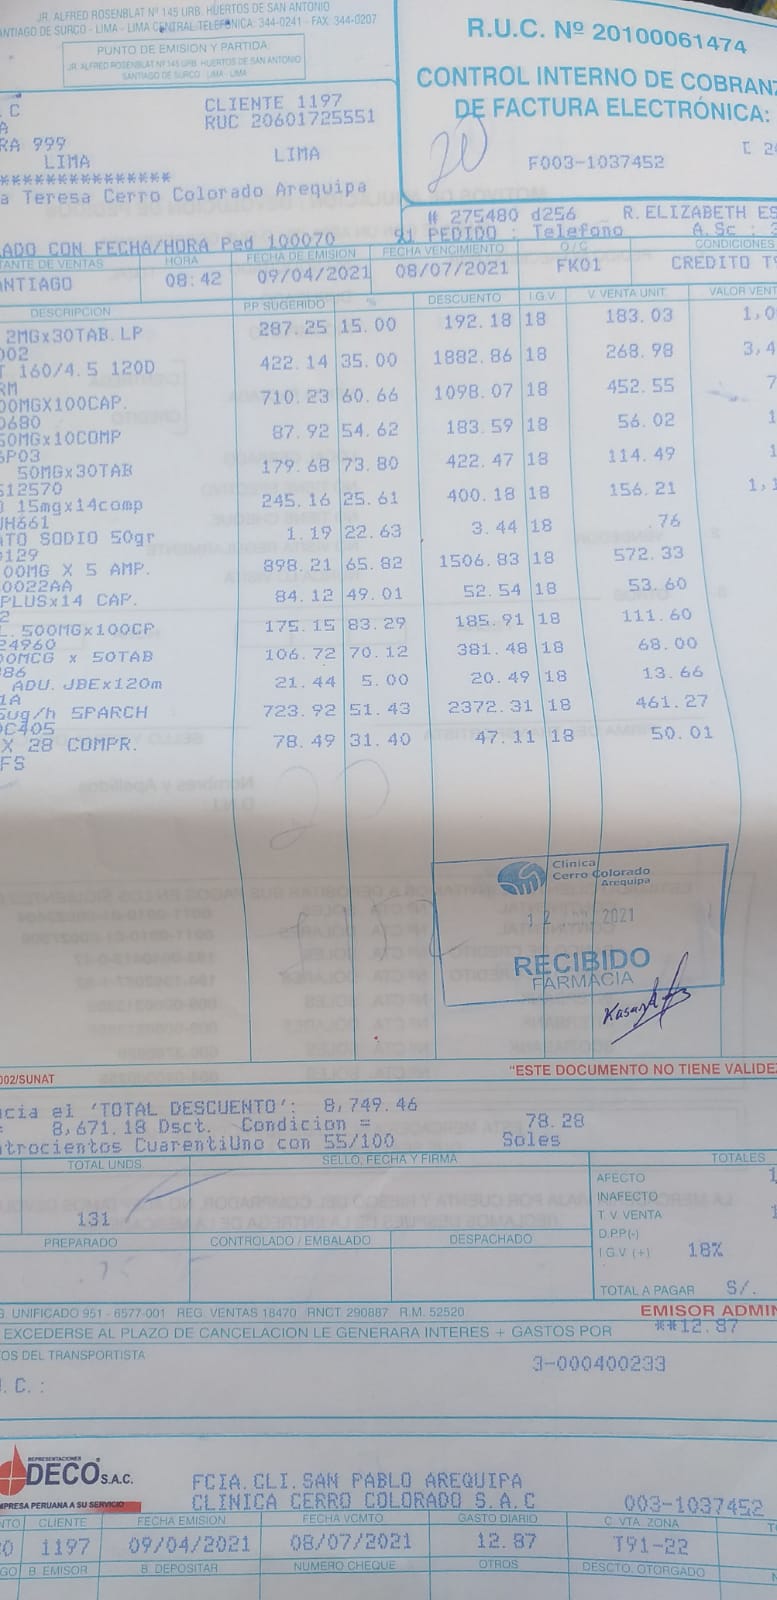 JR. ALFRED ROSENBLAT Nº 145 URB. HUERTOS DE SAN ANTONIO
SANTIAGO DE SURCO - LIMA - LIMA CENTRAL TELEFÓNICA: 344-0241 - FAX: 344-0207
PUNTO DE EMISION Y PARTIDA:
JR. ALFRED ROSENBLAT Nº 145 URB. HUERTOS DE SAN ANTONIO
SANTIAGO DE SURCO - LIMA - LIMA
R.U.C. Nº 20100061474
CONTROL INTERNO DE COBRANZ
DE FACTURA ELECTRÓNICA:
20
F003-1037452
. C CLIENTE 1197
A RUC 20601725551
RA 999
LIMA LIMA
***************
a Teresa Cerro Colorado Arequipa
# 275480 d256 R.ELIZABETH ES
LADO CON FECHA/HORA Ped 100070 PEDIDO : Telefono A.Sc : 3
TANTE DE VENTAS HORA FECHA DE EMISION FECHA VENCIMIENTO O/C CONDICIONES
ANTIAGO 08:42 09/04/2021 08/07/2021 FK01 CREDITO T9
DESCRIPCION PP SUGERIDO % DESCUENTO I.G.V V. VENTA UNIT. VALOR VENT
2MGx30TAB.LP 287.25 15.00 192.18 18 183.03 1,0
002
T 160/4.5 120D 422.14 35.00 1882.86 18 268.98 3,4
RM
00MGX100CAP. 710.23 60.66 1098.07 18 452.55 7
0680
50MGx10COMP 87.92 54.62 183.59 18 56.02 1
6P03
50MGx30TAB 179.68 73.80 422.47 18 114.49 1
S12570
O 15mgx14comp 245.16 25.61 400.18 18 156.21 1,1
UH661
ATO SODIO 50gr 1.19 22.63 3.44 18 .76
0129
00MG X 5 AMP. 898.21 65.82 1506.83 18 572.33
0022AA
PLUSx14 CAP. 84.12 49.01 52.54 18 53.60
2
L. 500MGx100CP 175.15 83.29 185.91 18 111.60
24960
00MCG x 50TAB 106.72 70.12 381.48 18 68.00
886
ADU. JBEx120m 21.44 5.00 20.49 18 13.66
1A
5ug/h 5PARCH 723.92 51.43 2372.31 18 461.27
0C405
X 28 COMPR. 78.49 31.40 47.11 18 50.01
FS
Clínica
Cerro Colorado
Arequipa
12 2021
RECIBIDO
FARMACIA
002/SUNAT "ESTE DOCUMENTO NO TIENE VALIDEZ
ncia el 'TOTAL DESCUENTO': 8,749.46
= 8,671.18 Dsct. Condicion = 78.28
atrocientos CuarentiUno con 55/100 Soles
TOTAL UNDS. SELLO, FECHA Y FIRMA TOTALES
131
PREPARADO CONTROLADO / EMBALADO DESPACHADO
AFECTO
INAFECTO
T. V. VENTA
D.PP(-)
I.G.V (+) 18%
TOTAL A PAGAR S/.
G. UNIFICADO 951 - 6577-001 REG. VENTAS 18470 RNCT 290887 R.M. 52520 EMISOR ADMIN
EXCEDERSE AL PLAZO DE CANCELACION LE GENERARA INTERES + GASTOS POR **12.87
OS DEL TRANSPORTISTA 3-000400233
. C. :
REPRESENTACIONES
DECO S.A.C.
MPRESA PERUANA A SU SERVICIO
FCIA.CLI.SAN PABLO AREQUIPA
CLINICA CERRO COLORADO S.A.C 003-1037452
NTO CLIENTE FECHA EMISION FECHA VCMTO GASTO DIARIO C. VTA. ZONA
0 1197 09/04/2021 08/07/2021 12.87 T91-22
GO B. EMISOR B. DEPOSITAR NUMERO CHEQUE OTROS DESCTO. OTORGADO